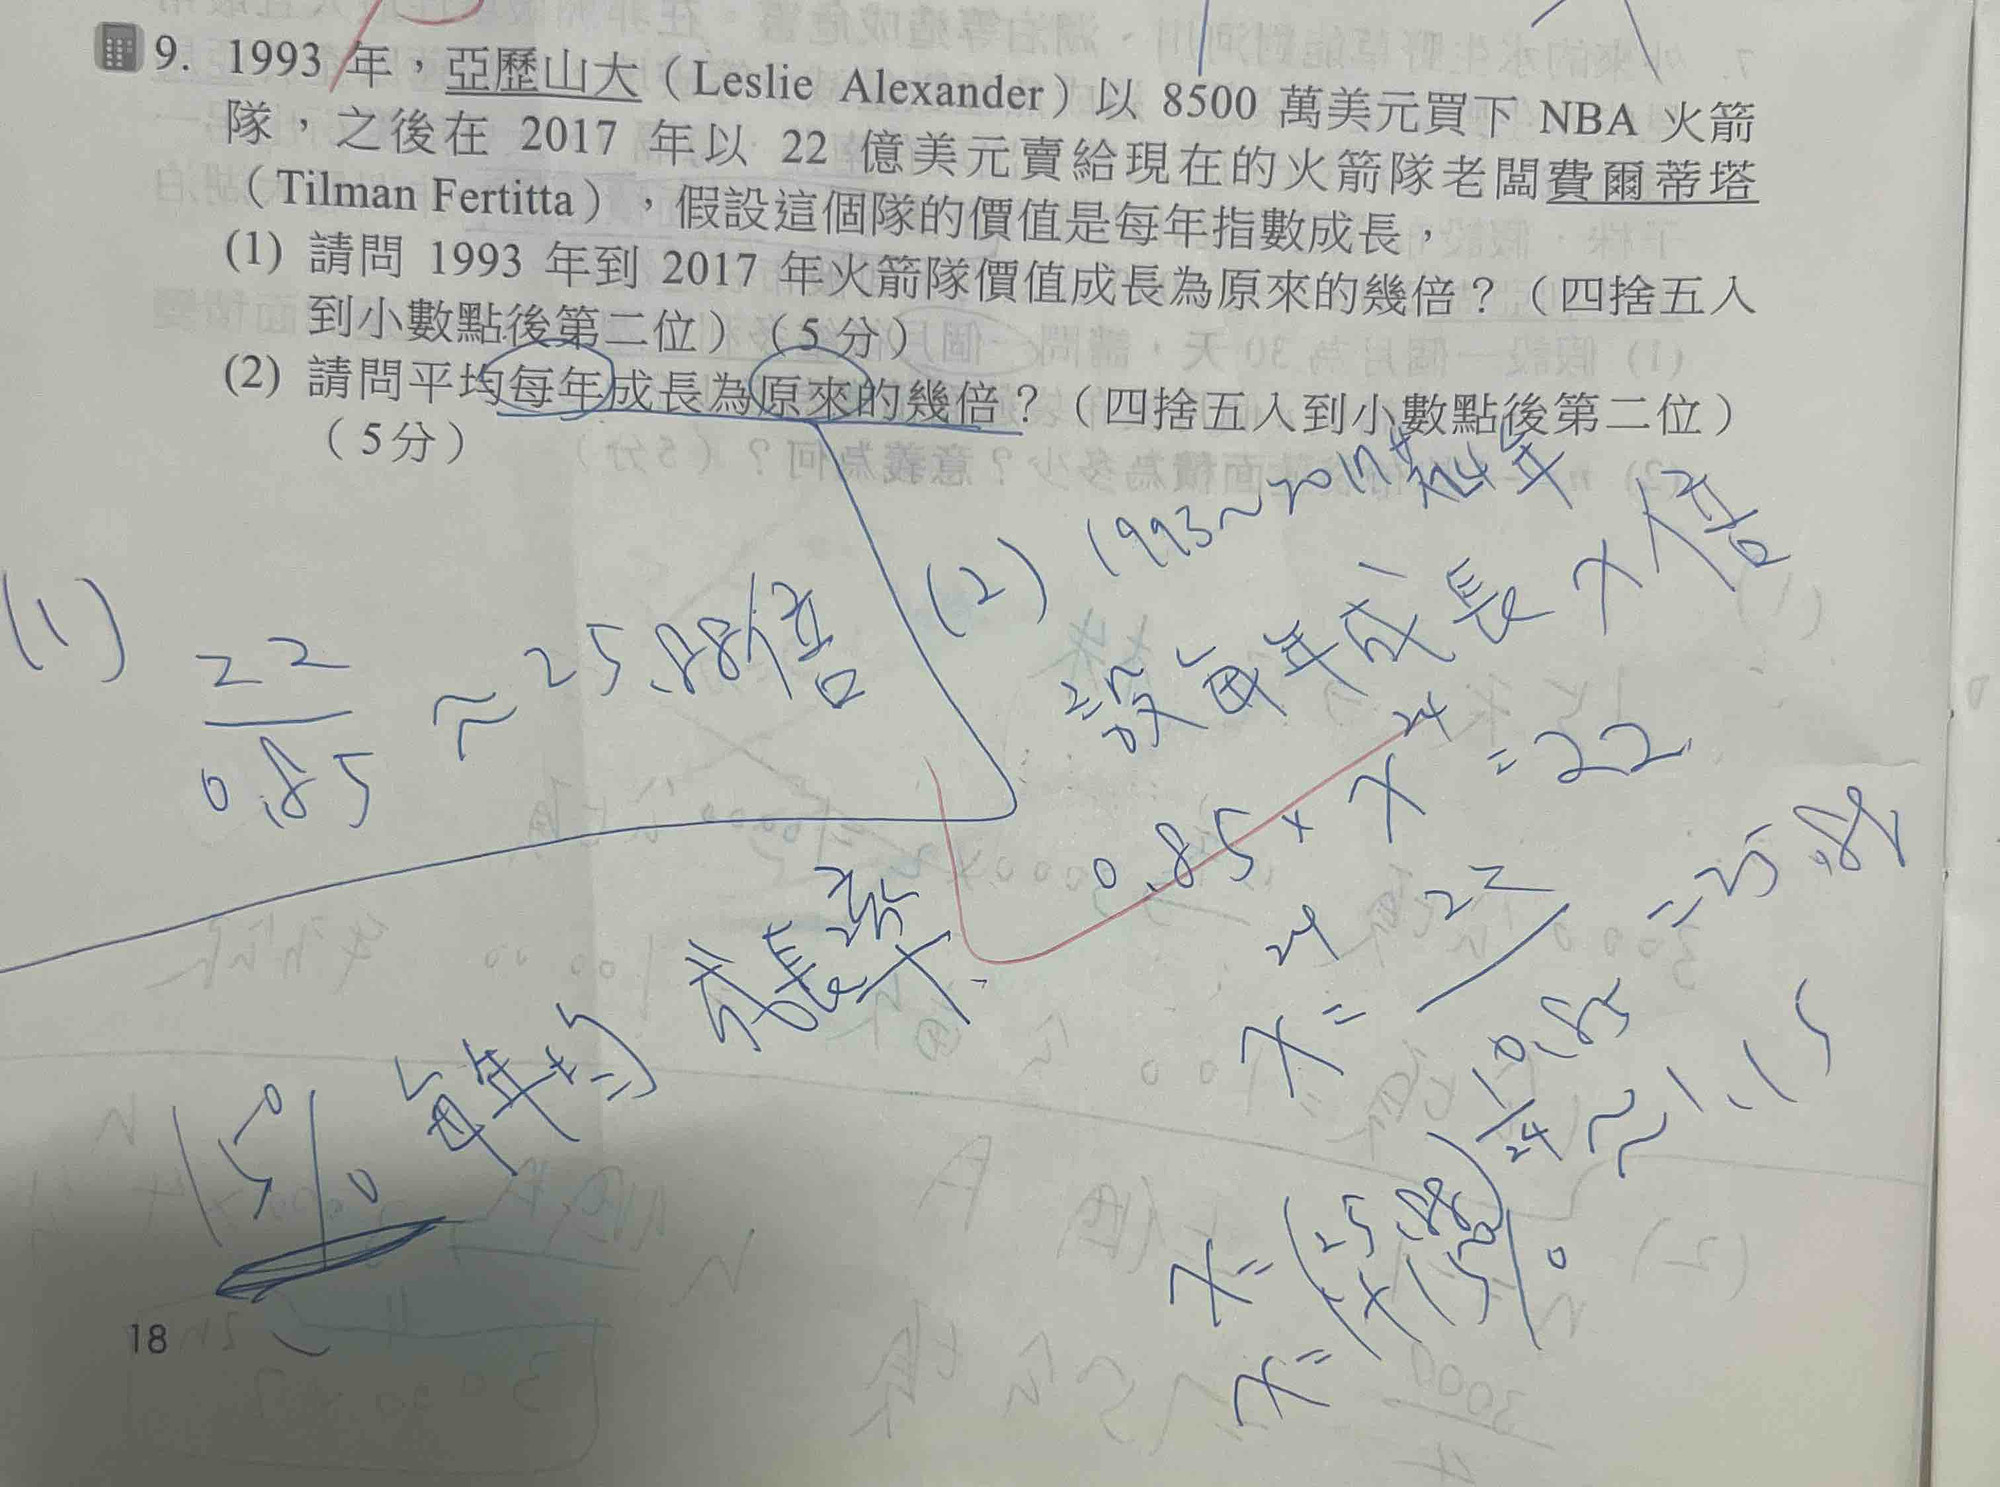 9. 1993 年，亞歷山大（Leslie Alexander）以 8500 萬美元買下 NBA 火箭
隊，之後在 2017 年以 22 億美元賣給現在的火箭隊老闆費爾蒂塔
（Tilman Fertitta），假設這個隊的價值是每年指數成長，
(1) 請問 1993 年到 2017 年火箭隊價值成長為原來的幾倍？（四捨五入
到小數點後第二位）（5 分）
(2) 請問平均每年成長為原來的幾倍？（四捨五入到小數點後第二位）
（5分）
(1)
22
0.85
≈ 25.88倍
(2) 1993~2017共24年
設每年成長 x 倍
0.85 × x^24 = 22
x^24 = 22/0.85 = 25.88
x = (25.88)^1/24 ≈ 1.15
x = 1+15%
15% 每年均成長率
18